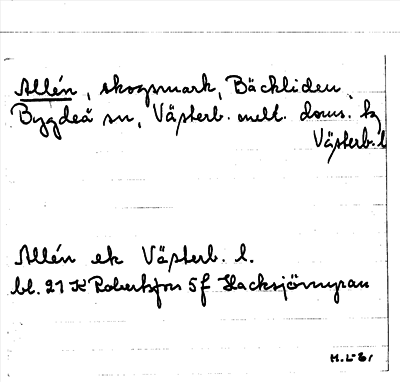 Allén, skogsmark, Bäckliden,
Bygdeå sn, Västerb. mell. doms. tg
Västerb. l
Allén ek Västerb. l.
bl. 21 K Robertsfors 5 f Hacksjömyran